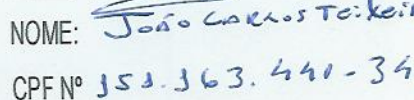 NOME: João Carlos Teixei
CPF Nº 151.163.440-34